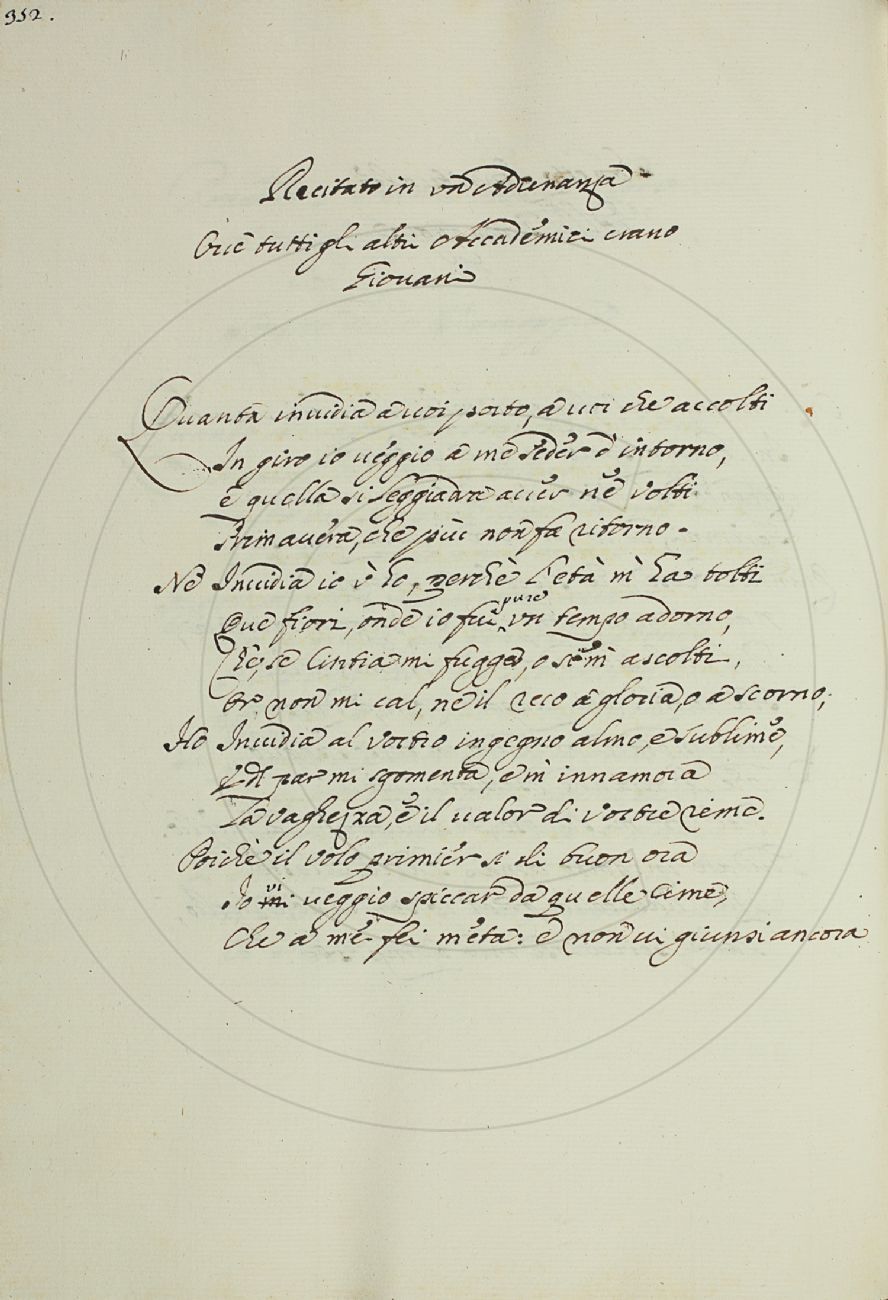 352.
Recitato in vn Adunanza
Oue tutti gli altri Accademici erano
Giouani
Quanta inuidia a uoi porto, a uoi che accolti
In giro io veggio a me seder d'intorno,
e quella si leggiadra auer ne' volti
Primauera, che piu non fa ritorno.
Ne Inuidia io v'ho, perchè l'età m'ha tolti
Que fiori, onde io fui pure vn tempo adorno,
Che, se Cintia mi fugge, o se m'ascolti,
Or non mi cal, ne il reco a gloria, o a scorno;
Ho Inuidia al vostro ingegno almo, e sublime,
Ed par mi sgomenta, e m'innamora
La vaghezza, e il valor di vostre rime.
Poichè il volo primier si di buon ora
Io vi veggio spiccar da quelle cime,
Che a me fei meta: e non ui giunsi ancora